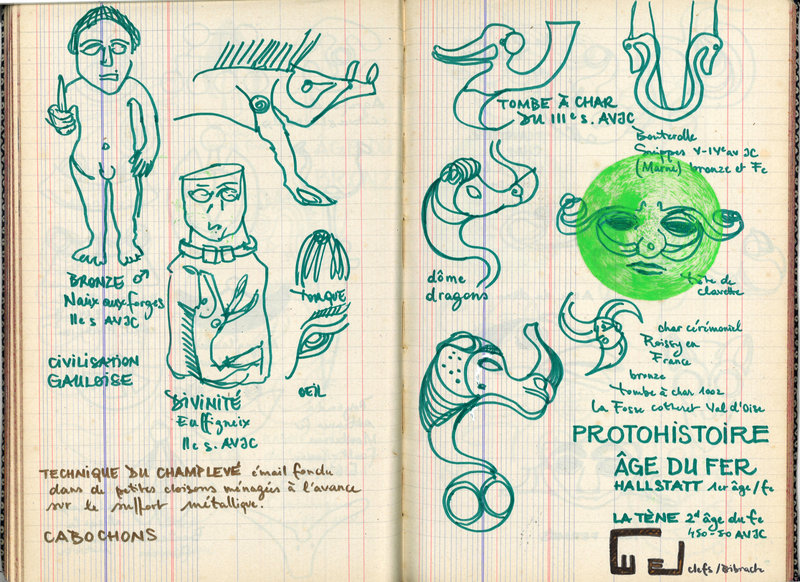 BRONZE ♂
Naix aux forges
IIe s AVJC
CIVILISATION
GAULOISE
DIVINITÉ
Euffigneix
IIe s. AVJC
TORQUE
OEIL
TECHNIQUE DU CHAMPLEVÉ émail fondu
dans de petites cloisons ménagés à l'avance
sur le support métallique.
CABOCHONS
TOMBE À CHAR
DU IIIe s. AVJC
Bouterolle
Suippes V-IVe av JC
(Marne) bronze et Fe
dôme
dragons
tête de
clavette
char cérémoniel
Roissy en
France
bronze
tombe à char 1002
La Fosse cotheret Val d'Oise
PROTOHISTOIRE
ÂGE DU FER
HALLSTATT 1er âge/fe
LA TÈNE 2d âge du fe
450-50 AVJC
clefs/Bibracte